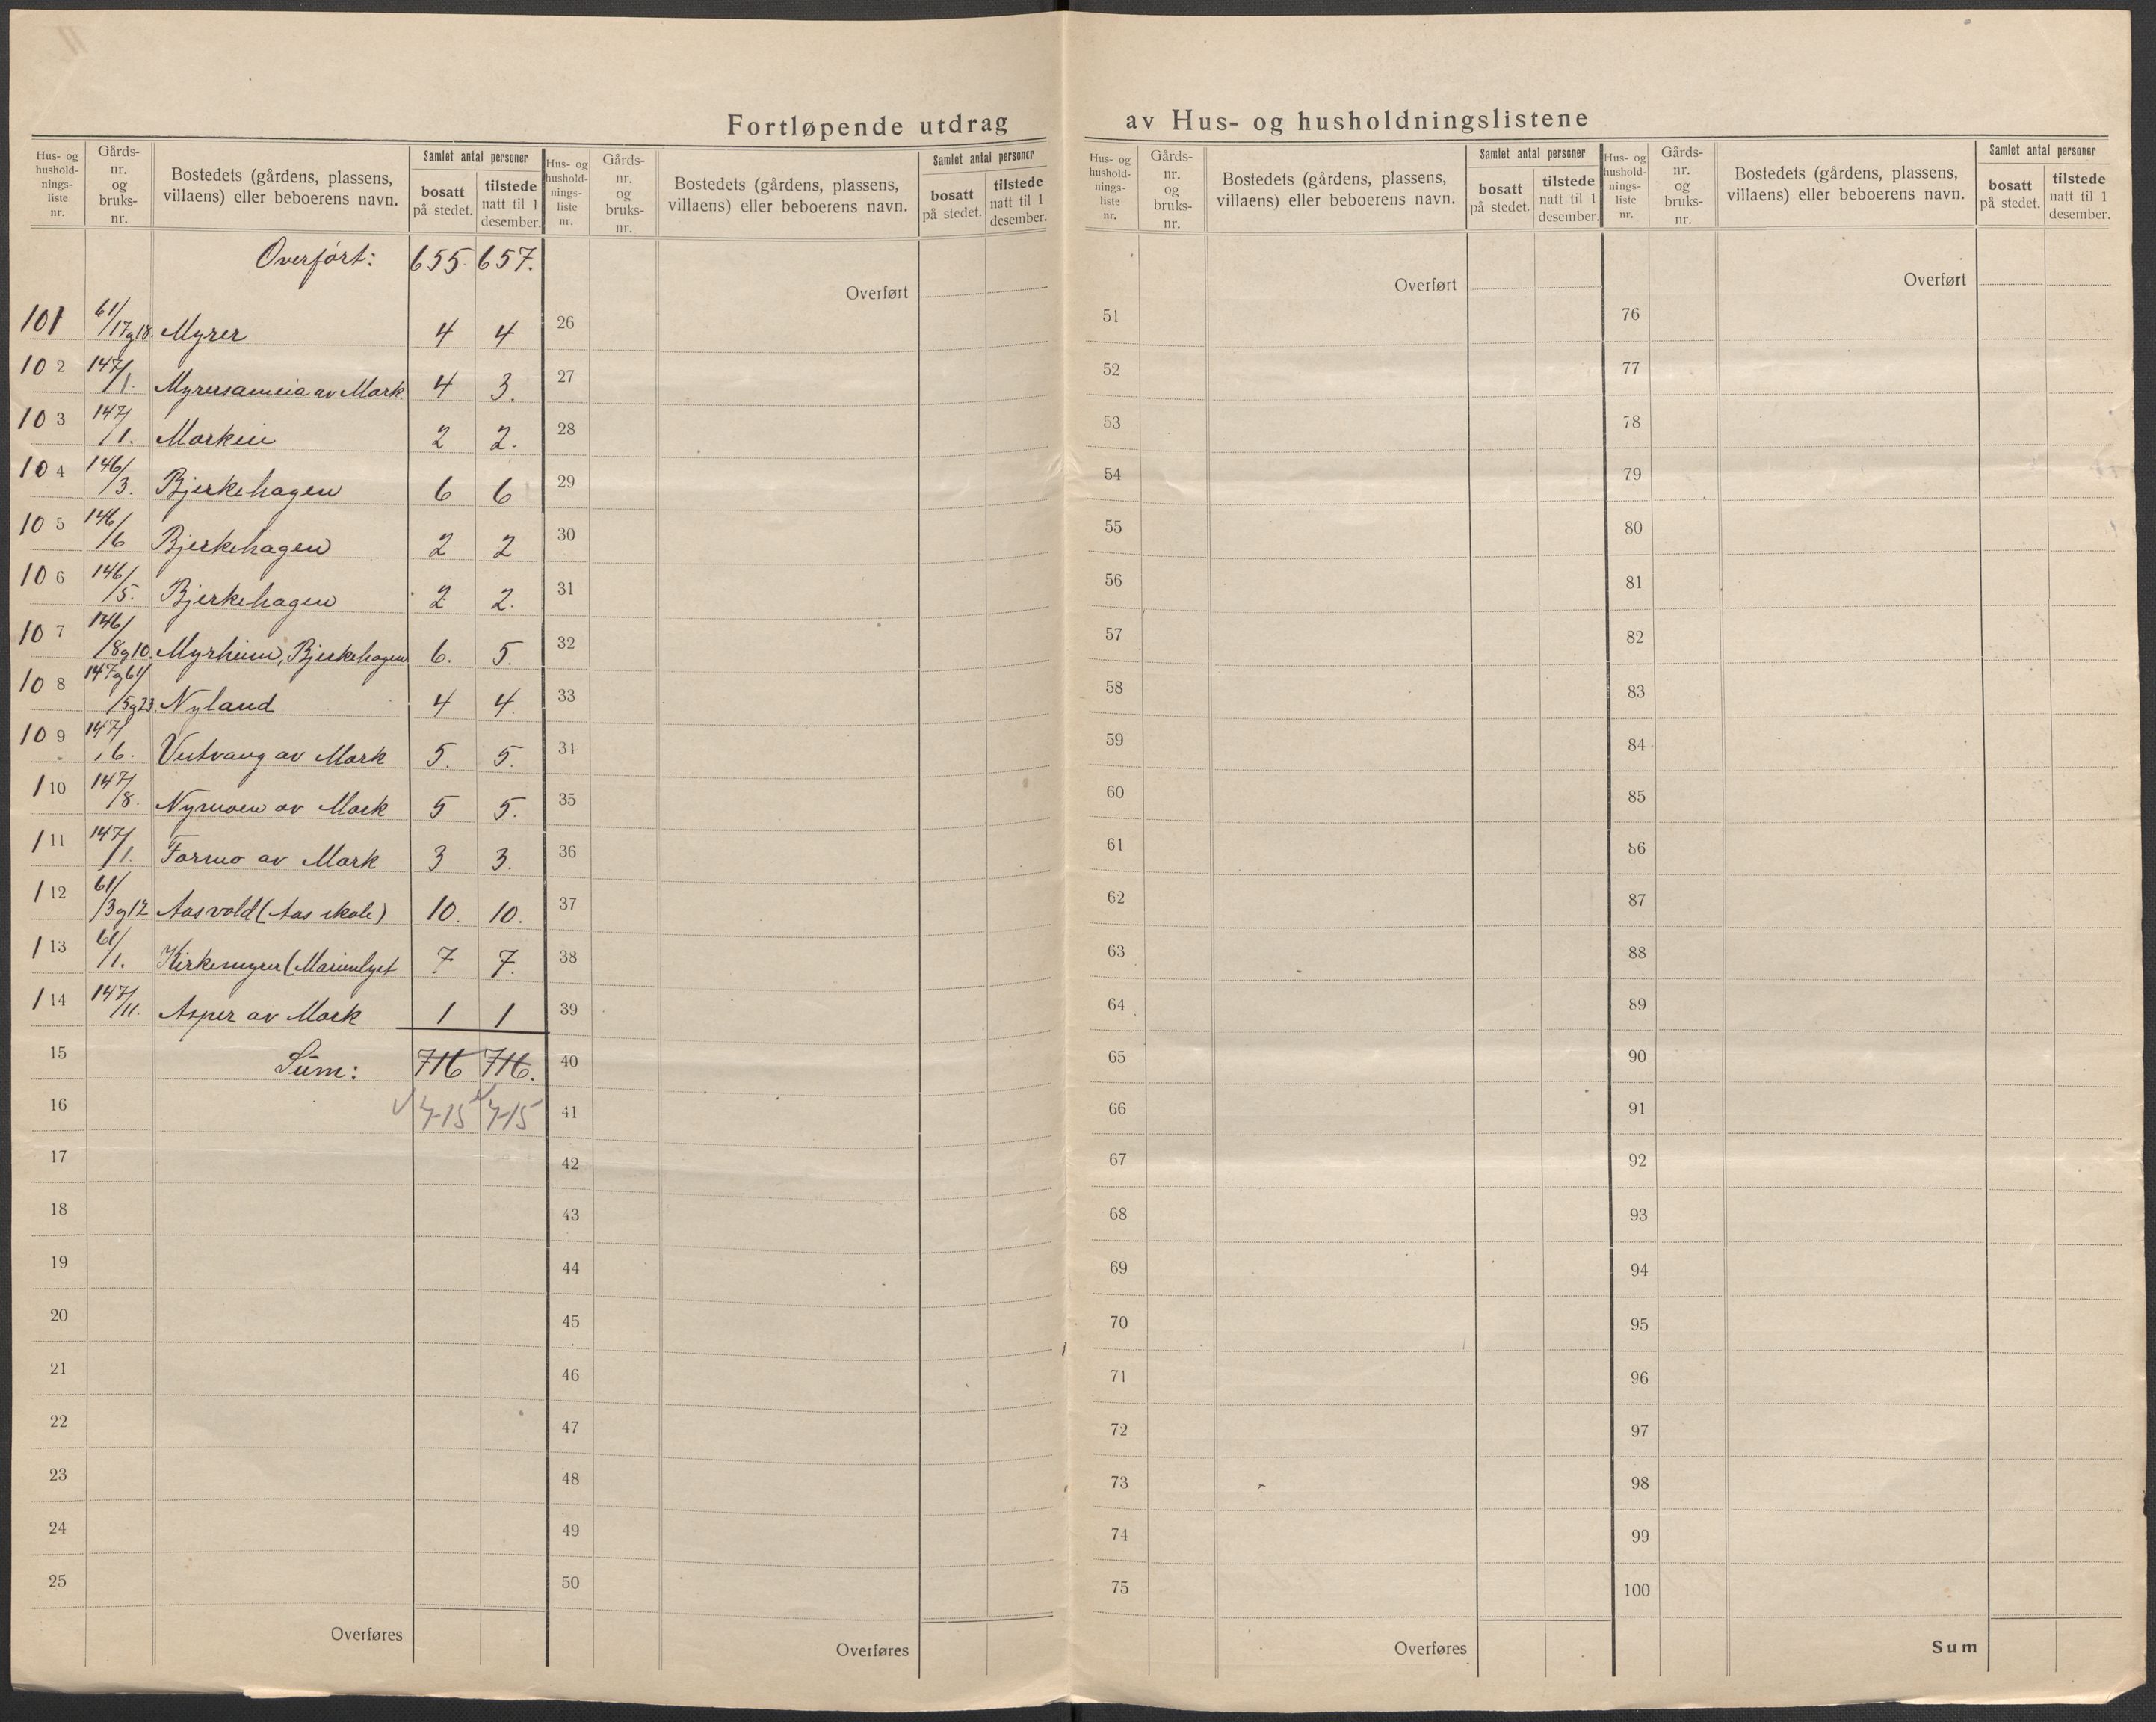 Fortløpende utdrag av Hus- og husholdningslistene
Hus- og hushold- nings- liste nr.
Gårds- nr. og bruks- nr.
Bostedets (gårdens, plassens, villaens) eller beboerens navn.
Samlet antal personer
bosatt på stedet.
tilstede natt til 1 desember.
Overført: 655 657.
101 61/17 og 18. Myrer 4 4
102 147/1. Myrersameia av Mork. 4 3.
103 147/1. 2 2.
104 146/3. Bjerkehagen 6 6
105 146/6 Bjerkehagen 2 2
106 146/5. Bjerkehagen 2 2.
107 146/8 og 10. Myrheim, Bjerkehagen 6. 5.
108 147 og 61/5 og 23. Nyland 4 4
109 147/6. av Mork 5. 5.
110 147/8. Nymoen av Mork 5 5.
111 147/1. Formo av Mork 3 3.
112 61/3 og 12 Aasvold (Aas skole) 10. 10.
113 61/1. Kirkemyrer (Marienlyst 7 7.
114 147/11. Asper av Mork 1 1
15 Sum: 716 716.
16 715 715
17
18
19
20
21
22
23
24
25
Overføres
Hus- og hushold- nings- liste nr.
Gårds- nr. og bruks- nr.
Bostedets (gårdens, plassens, villaens) eller beboerens navn.
Samlet antal personer
bosatt på stedet.
tilstede natt til 1 desember.
Overført
26
27
28
29
30
31
32
33
34
35
36
37
38
39
40
41
42
43
44
45
46
47
48
49
50
Overføres
Hus- og hushold- nings- liste nr.
Gårds- nr. og bruks- nr.
Bostedets (gårdens, plassens, villaens) eller beboerens navn.
Samlet antal personer
bosatt på stedet.
tilstede natt til 1 desember.
Overført
51
52
53
54
55
56
57
58
59
60
61
62
63
64
65
66
67
68
69
70
71
72
73
74
75
Overføres
Hus- og hushold- nings- liste nr.
Gårds- nr. og bruks- nr.
Bostedets (gårdens, plassens, villaens) eller beboerens navn.
Samlet antal personer
bosatt på stedet.
tilstede natt til 1 desember.
Overført
76
77
78
79
80
81
82
83
84
85
86
87
88
89
90
91
92
93
94
95
96
97
98
99
100
Sum